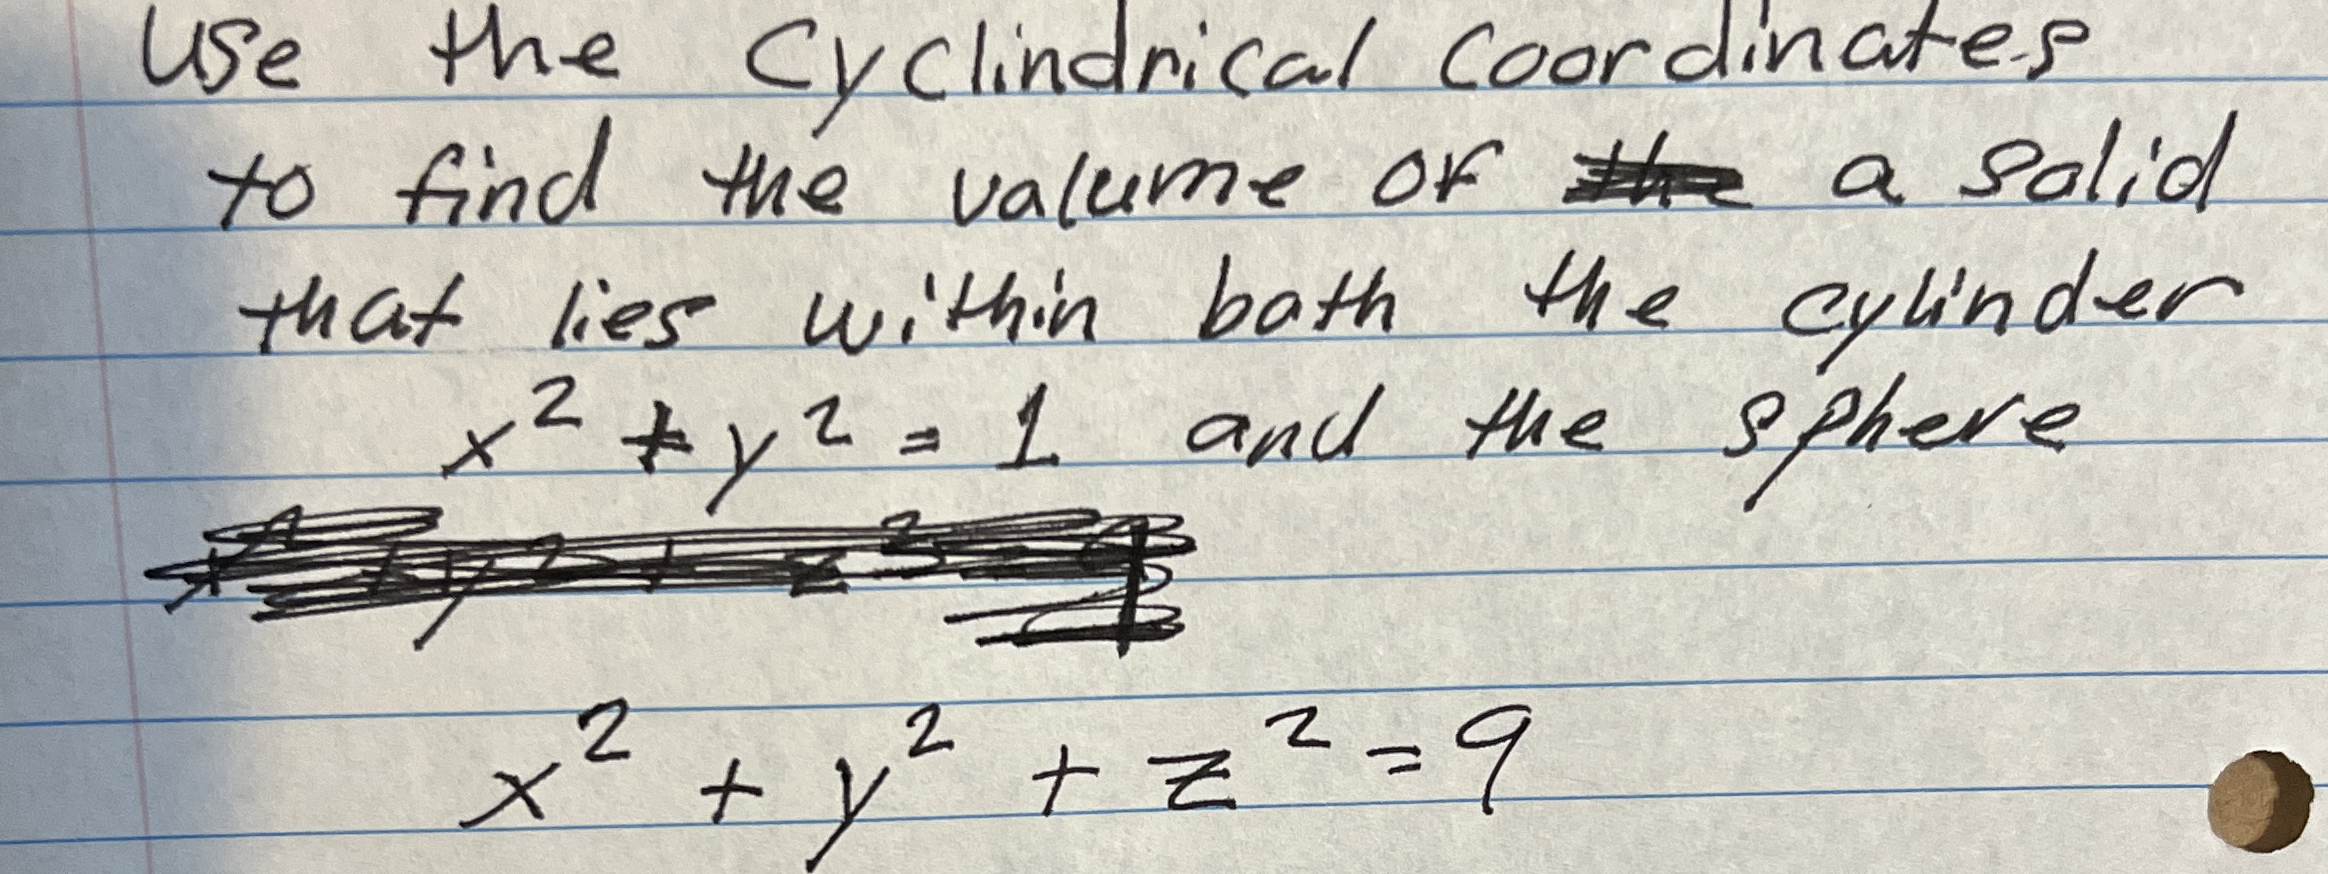 Use the Cyclindrical Coordinates
to find the valume of a solid
that lies within both the cylinder
x² + y² = 1 and the sphere
x² + y² + z² = 9